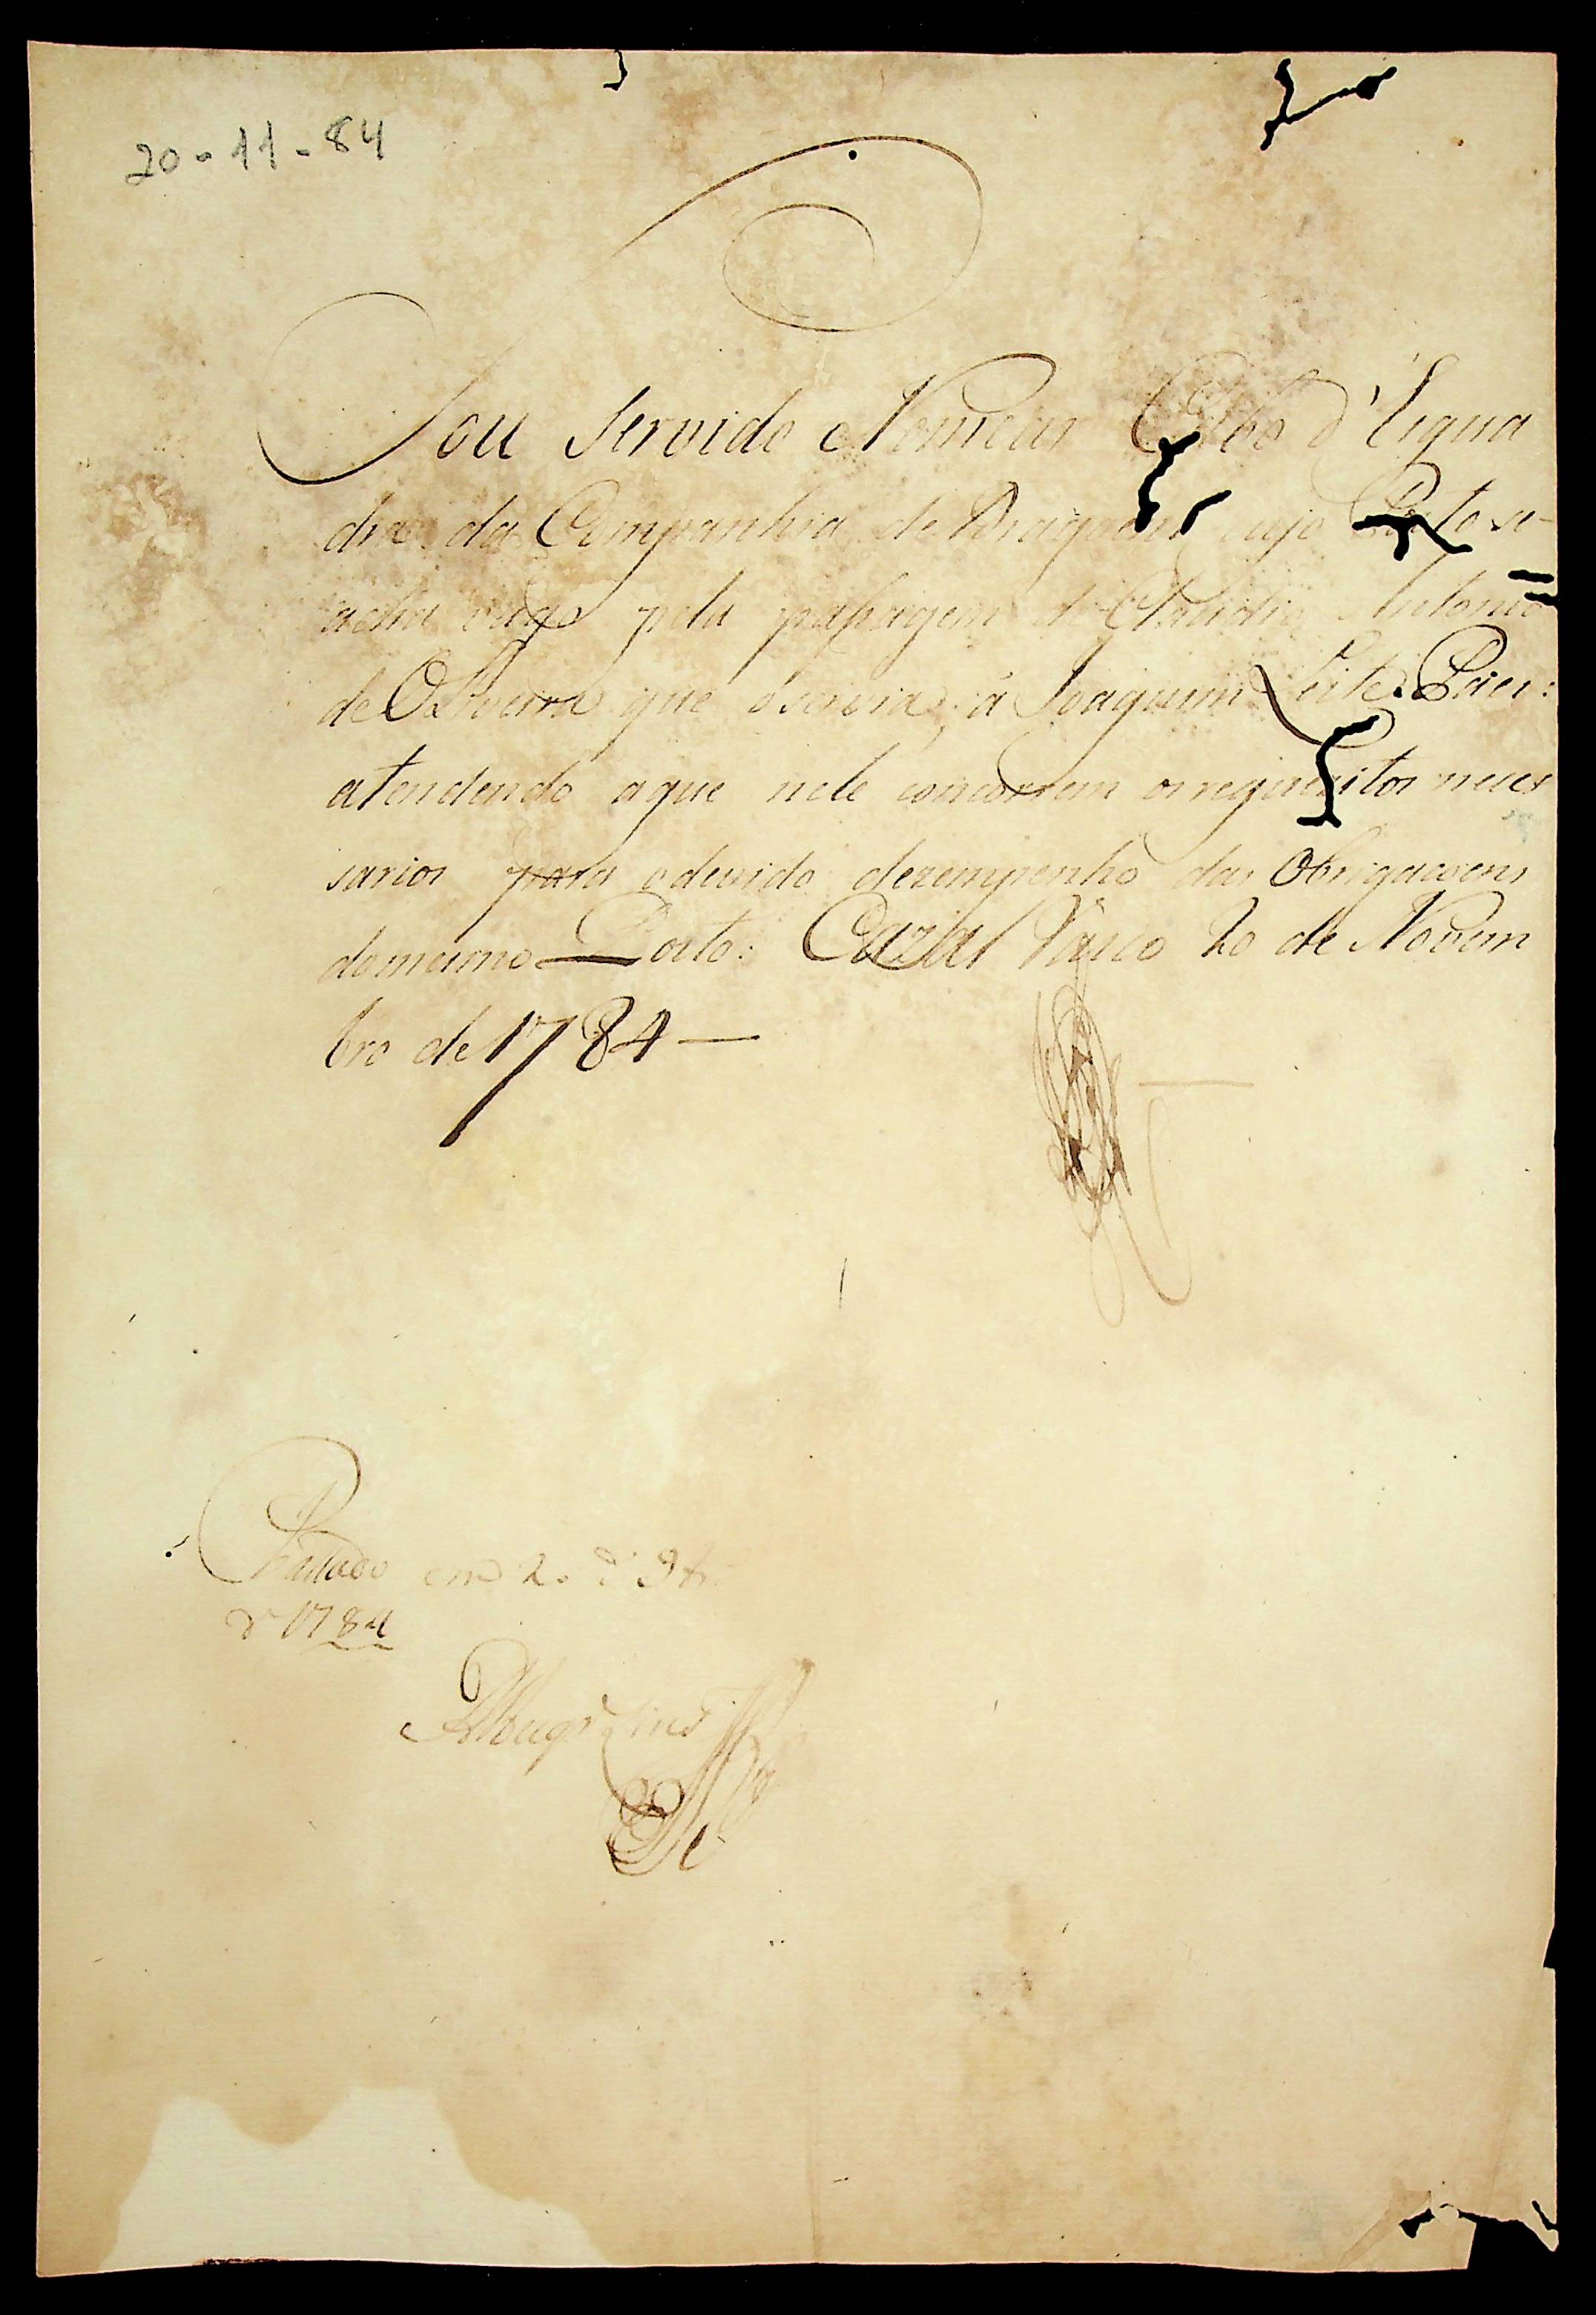 20-11-84
Sou Servido Nomear Cabo d'Esqua
dra da Companhia de Dragoens, cujo Posto se
acha vago pela passagem de Claudio Antonio
de Oliveira que o servia, á Joaquim Leite Paes:
atendendo aque nele concorrem os requizitos neces
sarios para o devido dezempenho das Obrigaçoens
domesmo Posto: Cazal Vasco 20 de Novem
bro de 1784
em 20 d 9br.
d 1784